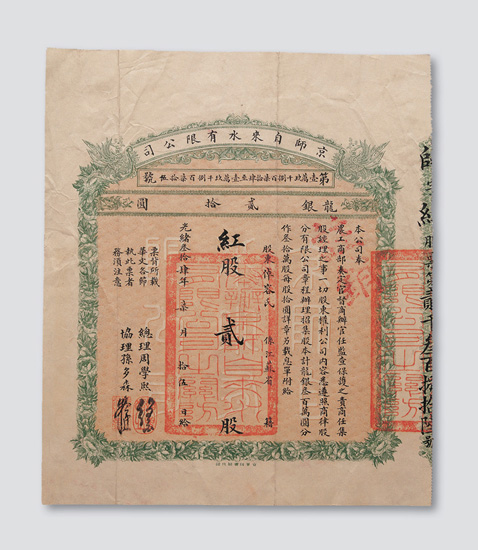 京師自來水有限公司
第壹萬玖千捌百柒拾肆至壹萬玖千捌百柒拾伍號
龍銀貳拾圓
本公司奉
農工商部奏定官督商辦官任監查保護之責商任集
股經理之事一切股東權利公司內容悉遵照商律股
分有限公司章程辦理招集股本計龍銀叁百萬圓分
作叁拾萬股每股拾圓詳章另載息單附給
股東惲容氏 係江蘇省 籍
紅股貳股
光緒叁拾肆年柒月拾伍日給
票背所載
華文各節
執此票者
務須注意
總理周學熙
協理孫多森